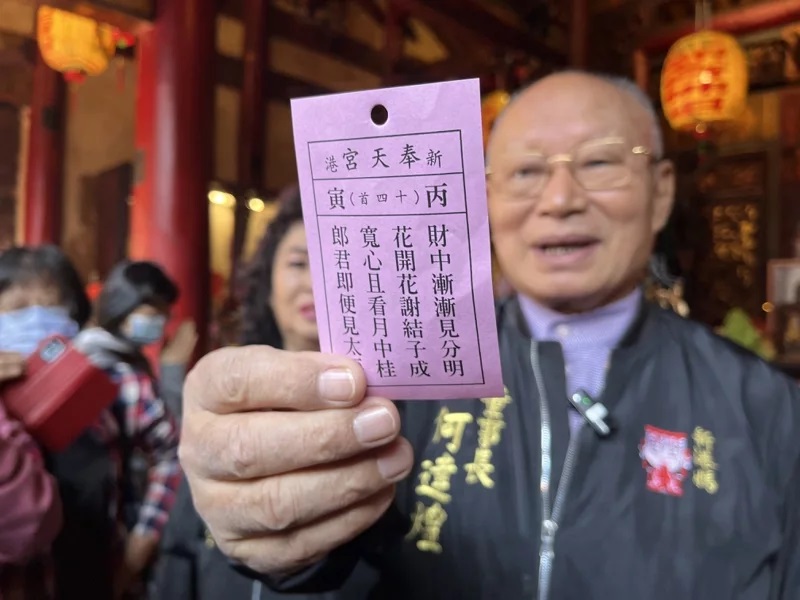 新奉天宮港
丙(十四首)寅
財中漸漸見分明
花開花謝結子成
寬心且看月中桂
郎君即便見太
事長
何達煌
新港媽